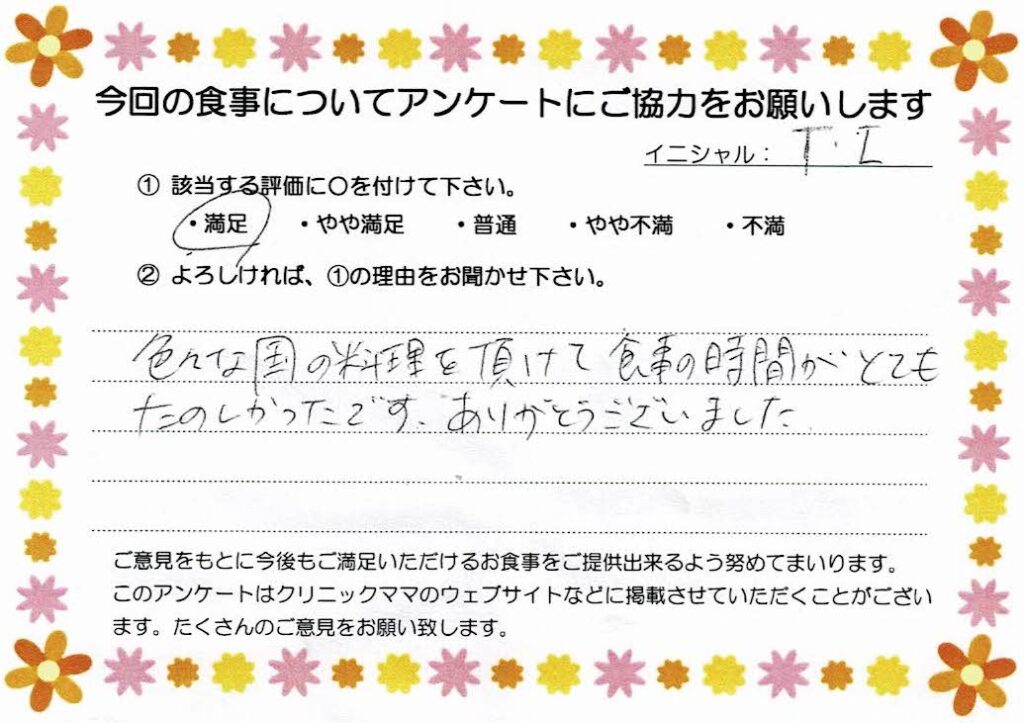 今回の食事についてアンケートにご協力をお願いします
イニシャル： T.I
① 該当する評価に〇を付けて下さい。
・満足 ・やや満足 ・普通 ・やや不満 ・不満
② よろしければ、①の理由をお聞かせ下さい。
色々な国の料理を頂けて 食事の時間が とても
たのしかったです、ありがとうございました
ご意見をもとに今後もご満足いただけるお食事をご提供出来るよう努めてまいります。
このアンケートはクリニックママのウェブサイトなどに掲載させていただくことがござい
ます。たくさんのご意見をお願い致します。